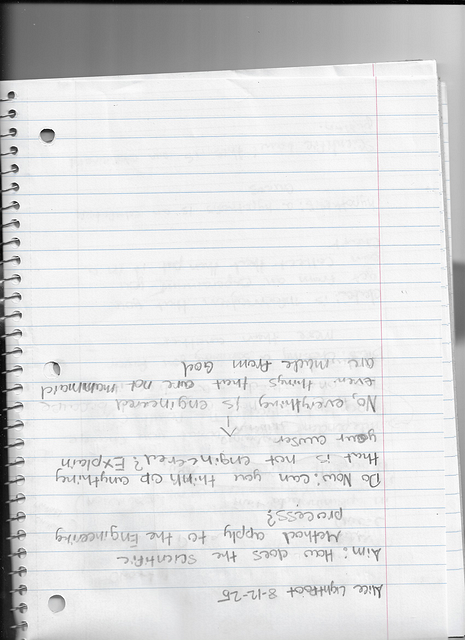 Alice Lightfoot 8-12-25
Aim: How does the scientific
Method apply to the Engineering
process?
Do Now: can you think op anything
that is not engineered? Explain
your auser
No, everything is engineered
even things that are not mammaid
are made from God